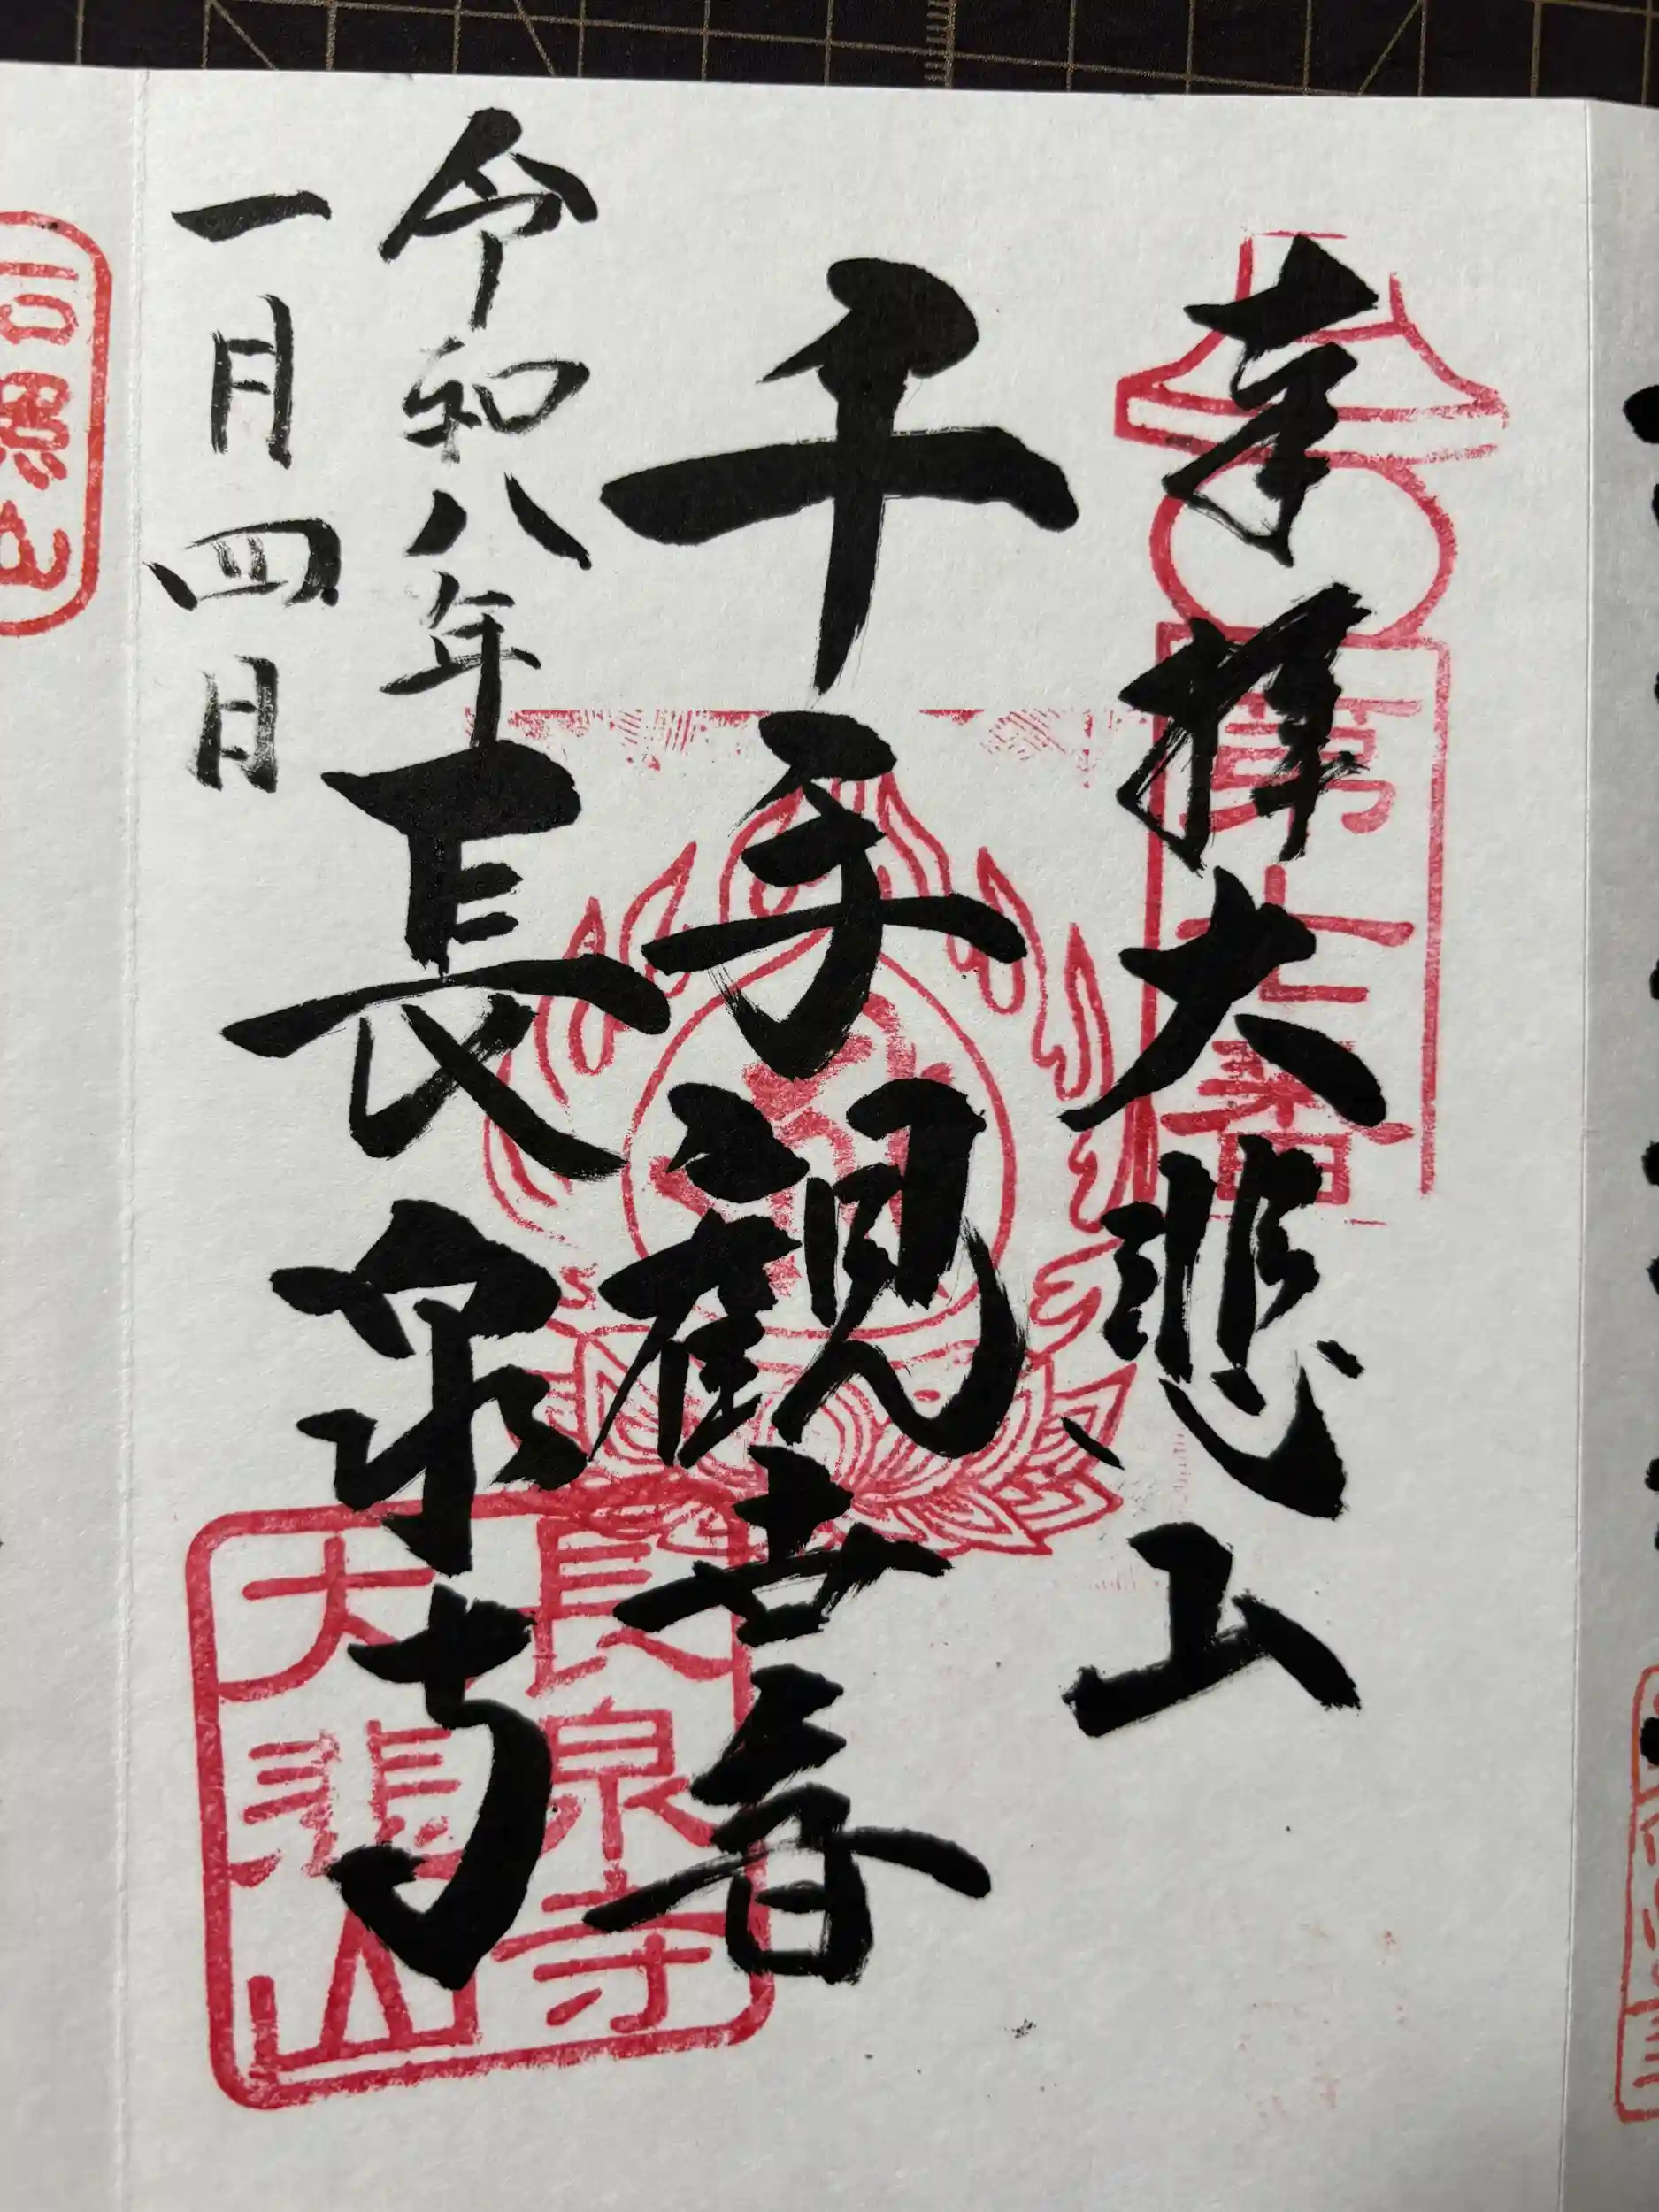 奉拝大悲山
第七番
千手観世音
令和八年
長泉寺
一月四日
長泉寺
大悲山